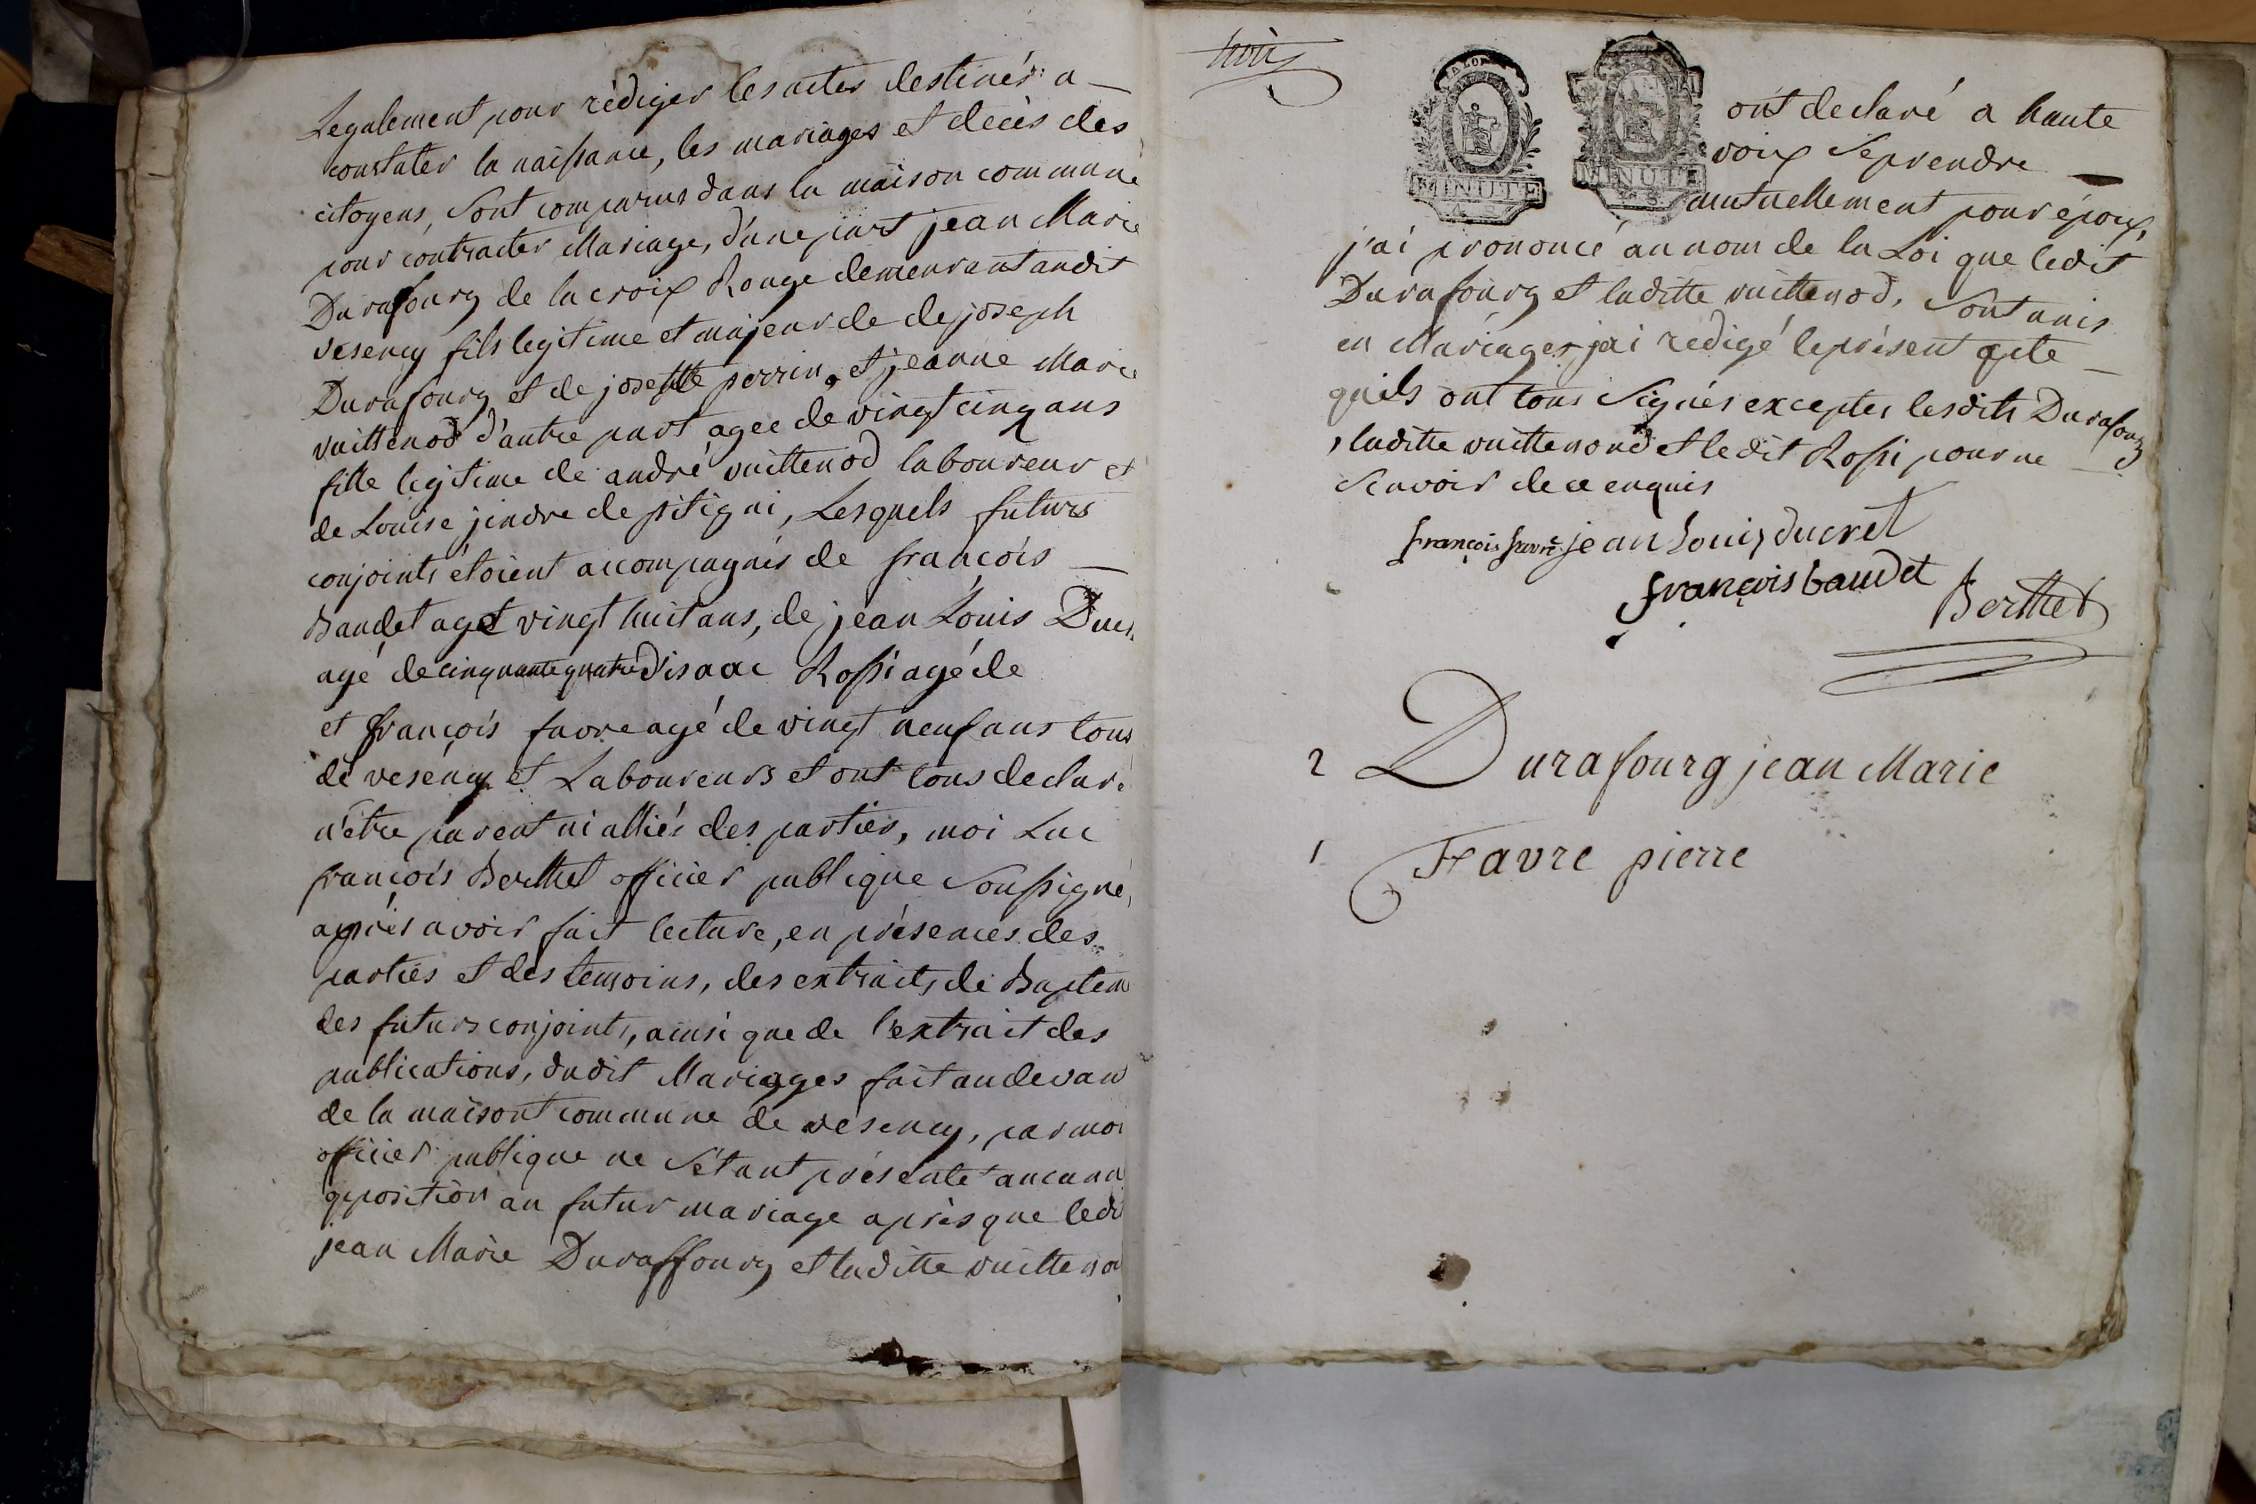 Legalement pour rédiger les actes destinés a
constater la naissance, les mariages et decès des
citoyens, Sont comparus dans la maison commune
pour contracter Mariage, d'une part jean Marie
Durafourg de la croix Rouge demeurant audit
vesency fils legitime et majeur de de joseph
Durafourg et de josephte perrin, et jeanne Marie
vuittenod d'autre part agee de vingt cinq ans
fille legitime de andré vuittenod laboureur et
de Louise jindre de pitigni, Lesquels futurs
conjoints étoient accompagnés de françois
Baudet agé vingt huit ans, de jean Louis Duc
agé de cinquante quatre d'isaac Rossi agé de
et françois favre agé de vingt neuf ans tous
de vesency et Laboureurs et ont tous declaré
n'être parent ni alliés des parties, moi Luc
françois Berthet officier publique Soussigné,
après avoir fait lecture, en présences des
parties et des temoins, des extraits de Baptem
des futurs conjoints, ainsi que de l'extrait des
publications, dudit Mariages fait au devan
de la maisont commune de vesency, par moi
officier publique ne S'étant présenté aucunn
opposition au futur mariage après que ledi
jean Marie Duraffourg et laditte vuittenod
trois
MINUTE
MINUTE
ont declaré a haute
voix Se prendre
mutuellement pour époux,
j'ai prononcé au nom de la Loi que ledit
Durafourg et laditte vuittenod, Sont unis
en Mariages, jai redigé le présent acte
quils ont tous Signés exceptes lesdits Durafourg
, laditte vuittenond et ledit Rossi pour ne
Scavoir de ce enquis
françois favre jean Louis ducret
françois baudet
Berthet
2 Durafourg jean Marie
1 Favre pierre